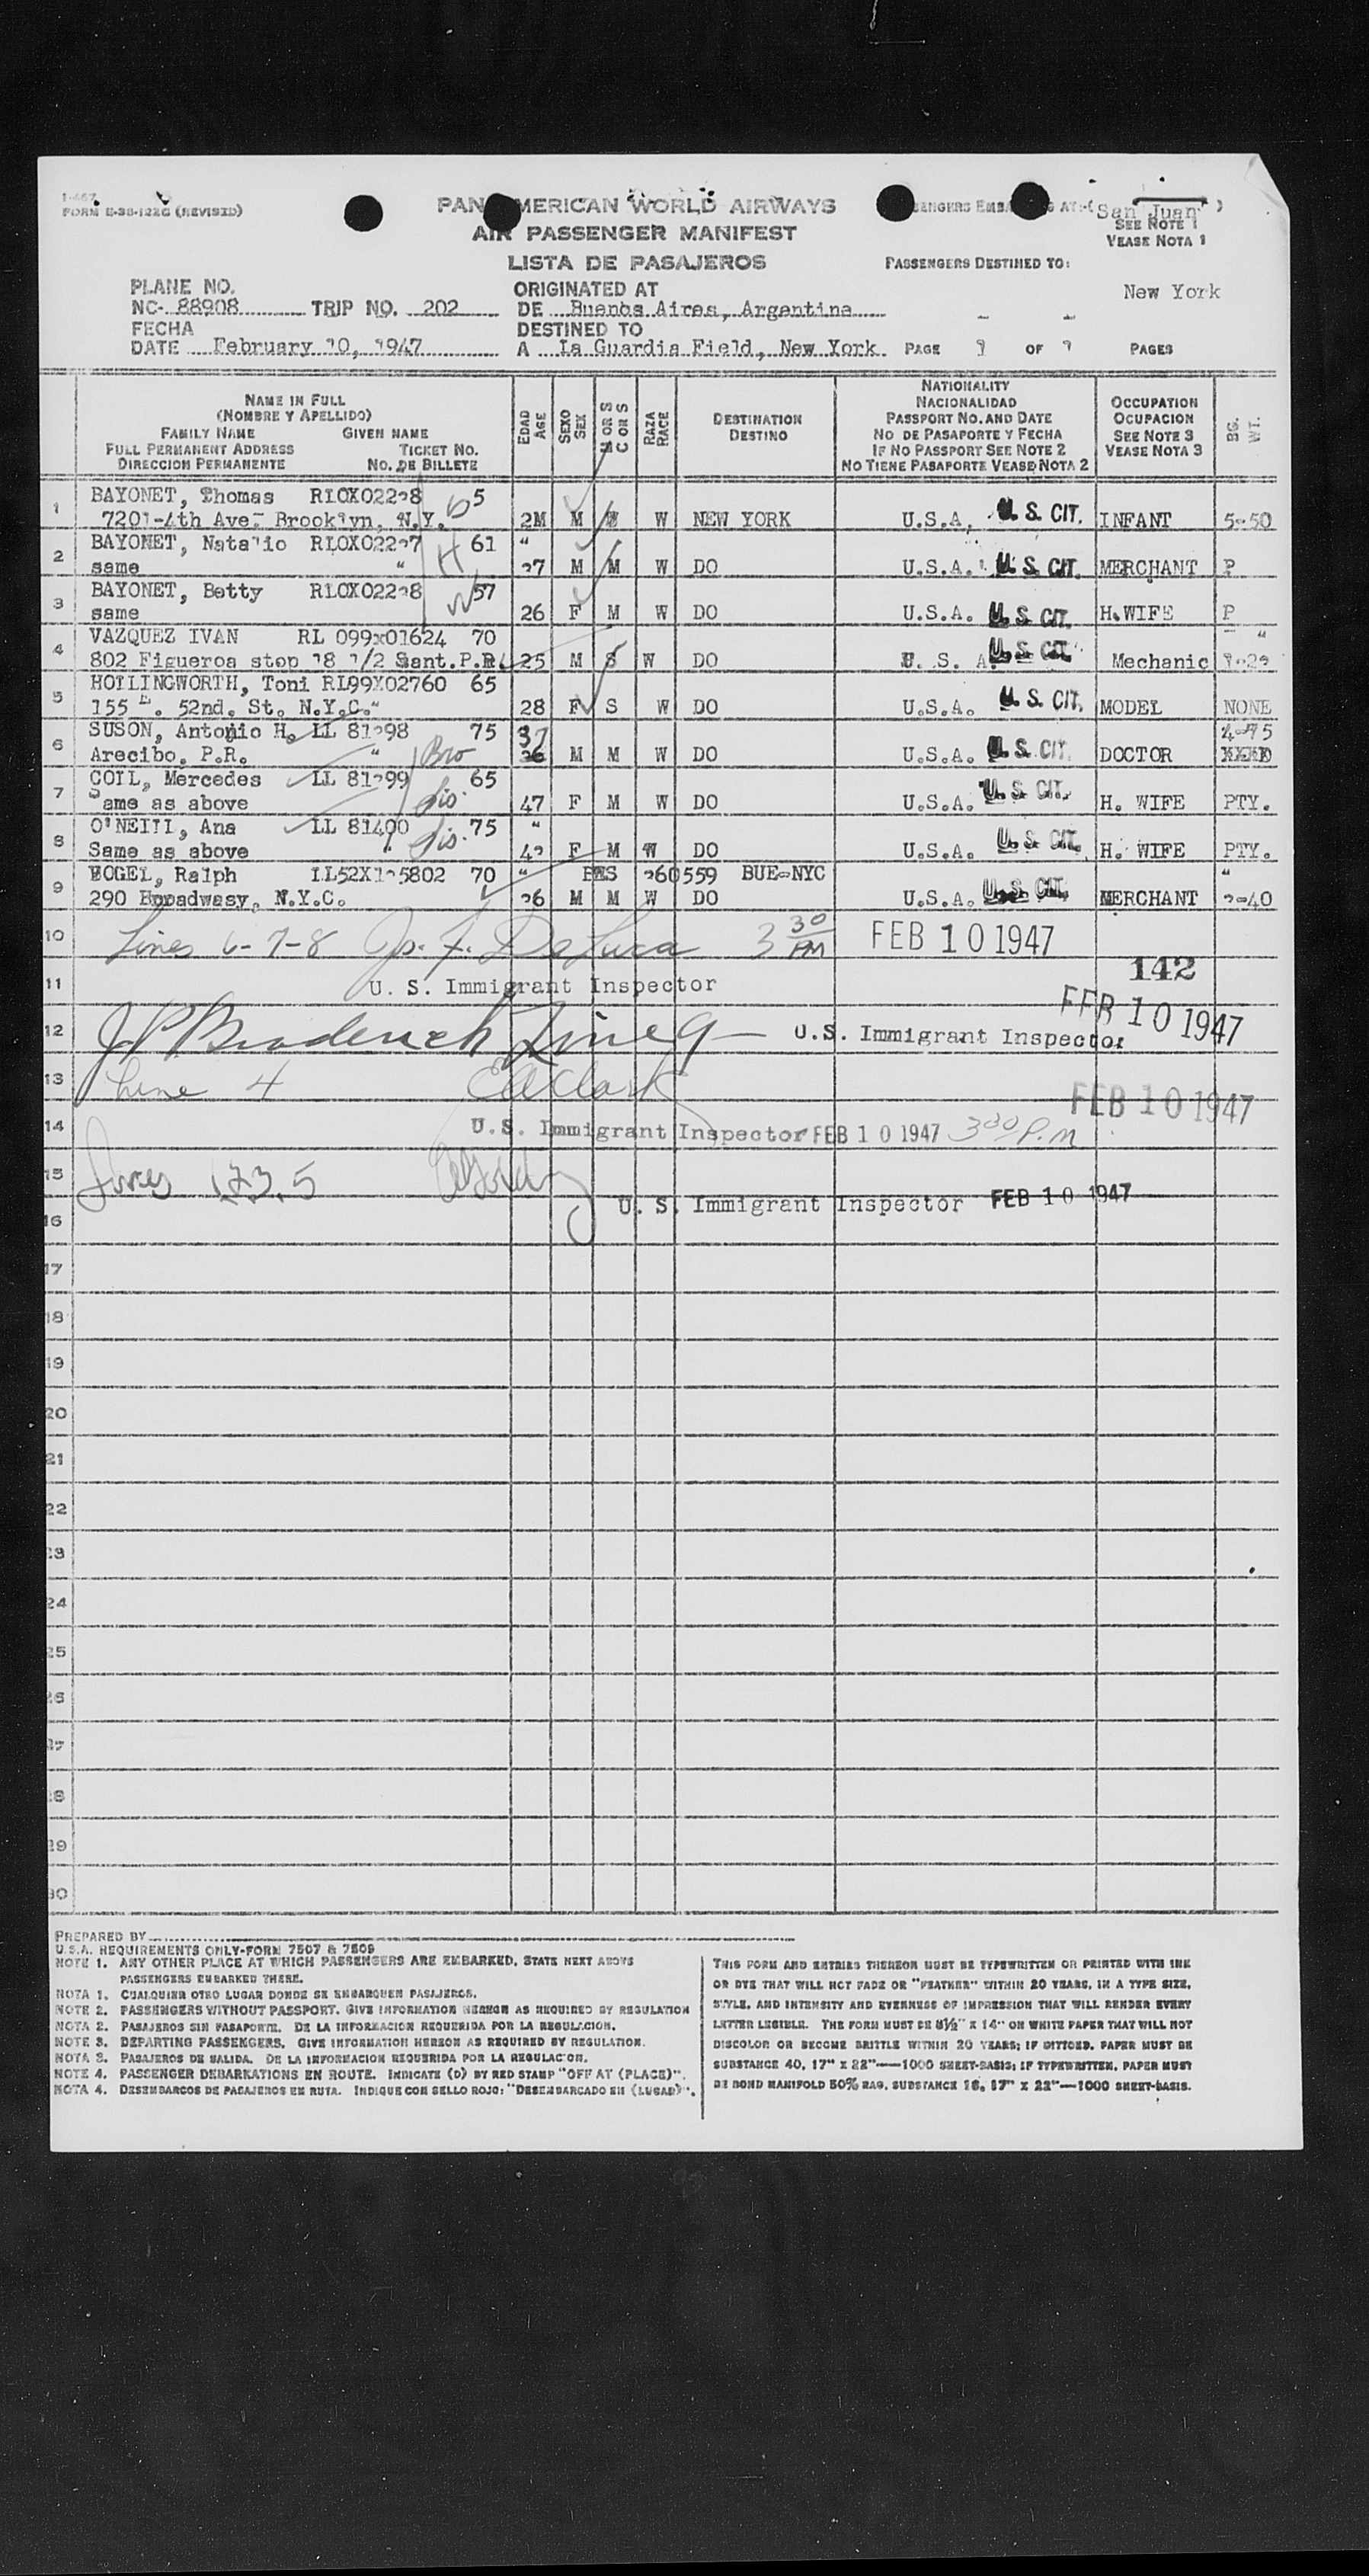 FORM E-38-122G (REVISED)
PAN AMERICAN WORLD AIRWAYS
AIR PASSENGER MANIFEST
LISTA DE PASAJEROS
PASSENGERS EMBARKING AT: (San Juan)
SEE NOTE 1
VEASE NOTA 1
PASSENGERS DESTINED TO:
New York
PLANE NO.
NC- 88908 TRIP NO. 202
FECHA
DATE February 10, 1947
ORIGINATED AT
DE Buenos Aires, Argentina
DESTINED TO
A La Guardia Field, New York PAGE 1 OF 1 PAGES
NAME IN FULL
(NOMBRE Y APELLIDO)
FAMILY NAME GIVEN NAME
FULL PERMANENT ADDRESS TICKET NO.
DIRECCION PERMANENTE NO. DE BILLETE
EDAD AGE
SEXO SEX
M OR S C OR S
RAZA RACE
DESTINATION
DESTINO
NATIONALITY
NACIONALIDAD
PASSPORT NO. AND DATE
NO DE PASAPORTE Y FECHA
IF NO PASSPORT SEE NOTE 2
NO TIENE PASAPORTE VEASE NOTA 2
OCCUPATION
OCUPACION
SEE NOTE 3
VEASE NOTA 3
BG. WT.
1 BAYONET, Thomas RLOX02218 5
7201-4th Ave. Brooklyn, N.Y. 2M M W NEW YORK U.S.A. U. S. CIT. INFANT 5-50
2 BAYONET, Natalio RLOX02217 H 61 "
same " 27 M M W DO U.S.A. U. S. CIT. MERCHANT P
3 BAYONET, Betty RLOX02218 W 57
same 26 F M W DO U.S.A. U. S. CIT. H.WIFE P
4 VAZQUEZ IVAN RL 099x01624 70
802 Figueroa stop 18 1/2 Sant.P.R. 25 M S W DO U. S. A. U. S. CIT. Mechanic
5 HOLLINGWORTH, Toni RL99X02760 65
155 E. 52nd. St. N.Y.C. 28 F S W DO U.S.A. U. S. CIT. MODEL NONE
6 SUSON, Antonio H. LL 81398 75 37 4-75
Arecibo, P.R. " Bro 36 M M W DO U.S.A. U. S. CIT. DOCTOR
7 COLL, Mercedes LL 81399 65
Same as above Sis. 47 F M W DO U.S.A. U. S. CIT. H. WIFE PTY.
8 O'NEILL, Ana LL 81400 75 "
Same as above Sis. 42 F M W DO U.S.A. U. S. CIT. H. WIFE PTY.
9 VOGEL, Ralph LL52X125802 70 " RES 260559 BUE-NYC "
290 Broadwasy, N.Y.C. 26 M M W DO U.S.A. U. S. CIT. MERCHANT 2-40
10 Lines 6-7-8 Jos. F. DeLuca 3 30 PM FEB 10 1947
142
11 U. S. Immigrant Inspector
FEB 10 1947
12 J P Broderick Line 9 U.S. Immigrant Inspector
13 Line 4 E A Clark
FEB 10 1947
14 U.S. Immigrant Inspector FEB 10 1947 3 30 P.M
15 Lines 1,2,3,5
U. S. Immigrant Inspector FEB 10 1947
16
17
18
19
20
21
22
23
24
25
26
27
28
29
30
PREPARED BY
U.S.A. REQUIREMENTS ONLY-FORM 7507 & 7509
NOTE 1. ANY OTHER PLACE AT WHICH PASSENGERS ARE EMBARKED, STATE NEXT ABOVE
PASSENGERS EMBARKED THERE.
NOTA 1. CUALQUIER OTRO LUGAR DONDE SE EMBARQUEN PASAJEROS.
NOTE 2. PASSENGERS WITHOUT PASSPORT, GIVE INFORMATION HEREON AS REQUIRED BY REGULATION
NOTA 2. PASAJEROS SIN PASAPORTE. DE LA INFORMACION REQUERIDA POR LA REGULACION.
NOTE 3. DEPARTING PASSENGERS. GIVE INFORMATION HEREON AS REQUIRED BY REGULATION.
NOTA 3. PASAJEROS DE SALIDA. DE LA INFORMACION REQUERIDA POR LA REGULACION.
NOTE 4. PASSENGER DEBARKATIONS EN ROUTE. INDICATE (D) BY RED STAMP "OFF AT (PLACE)".
NOTA 4. DESEMBARCOS DE PASAJEROS EN RUTA. INDIQUE CON SELLO ROJO: "DESEMBARCADO EN (LUGAR)".
THIS FORM AND ENTRIES THEREON MUST BE TYPEWRITTEN OR PRINTED WITH INK
OR DYE THAT WILL NOT FADE OR "FEATHER" WITHIN 20 YEARS, IN A TYPE SIZE,
STYLE, AND INTENSITY AND EVENNESS OF IMPRESSION THAT WILL RENDER EVERY
LETTER LEGIBLE. THE FORM MUST BE 8½" X 14" ON WHITE PAPER THAT WILL NOT
DISCOLOR OR BECOME BRITTLE WITHIN 20 YEARS; IF DITTOED, PAPER MUST BE
SUBSTANCE 40, 17" X 22"—1000 SHEET-BASIS; IF TYPEWRITTEN, PAPER MUST
BE BOND MANIFOLD 50% RAG, SUBSTANCE 16, 17" X 22"—1000 SHEET-BASIS.